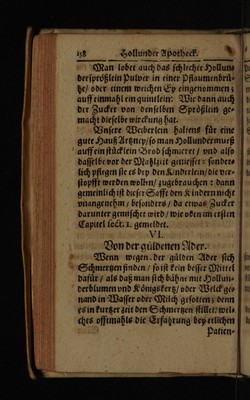 158 Hollunder Apotheck.
Man lobet auch das schlechte Hollun-
dersprößlein Pulver in einer Pflaumenbrü-
he/ oder einem weichen Ey eingenommen:
auff einmahl ein quintlein: Wie dann auch
der Zucker von denselben Sprößlein ge-
macht dieselbe wirckung hat.
Unsere Weiberlein haltens für eine
gute Hauß Artzney/ so man Hollundermuß
auff ein stücklein Brodt schmieret/ und also
dasselbe vor der Mahlzeit geniesset: sonder-
lich pflegen sie es den Kinderlein/ die ver-
stopfft werden wollen/ zugebrauchen: dann
gemeinlich ist dieser Safft den Kindern nicht
unangenehm/ besonders/ da etwas Zucker
darunter gemischet wird/ wie oken im ersten
Capitel loct. 1. gemeldet.
VI.
Von der güldenen Ader.
Wenn wegen der gülden Ader sich
Schmertzen finden/ so ist kein besser Mittel
dafür/ als daß man sich bähne mit Hollun-
derblumen und Königskertz/ oder Welck ge-
nand in Wasser oder Milch gesotten: denn
es in kurtzer zeit den Schmertzen stillet: wel-
ches offtmahls die Erfahrung bey etlichen
Patien-